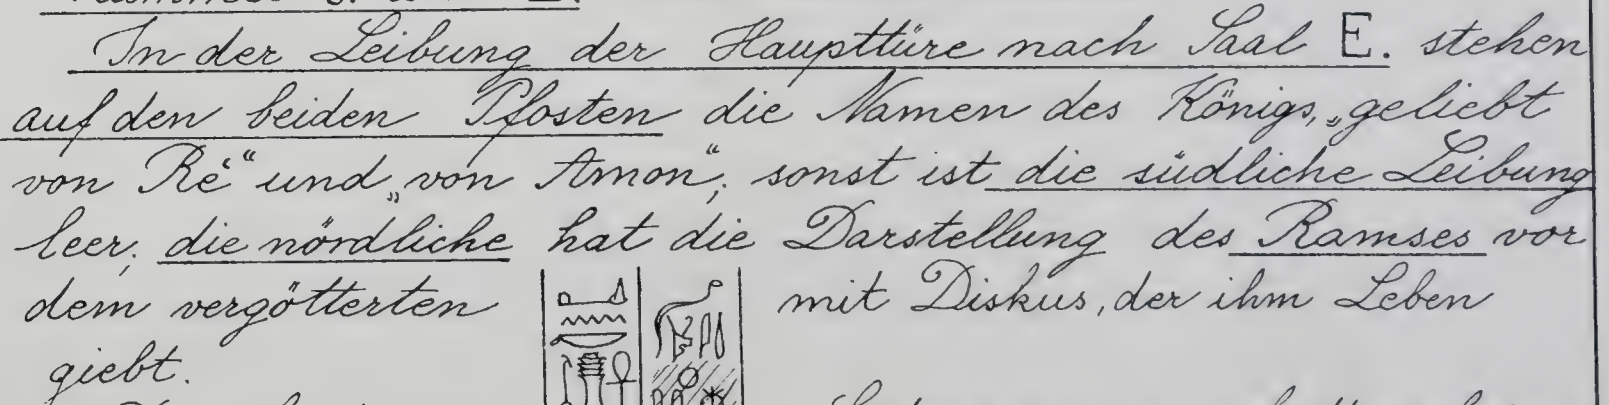 In der Leibung der Haupttüre nach Saal E. stehen
auf den beiden Pfosten die Namen des Königs, „geliebt
von Rē“ und „von Amon“, sonst ist die südliche Leibung
leer; die nördliche hat die Darstellung des Ramses vor
dem vergötterten mit Diskus, der ihm Leben
giebt.